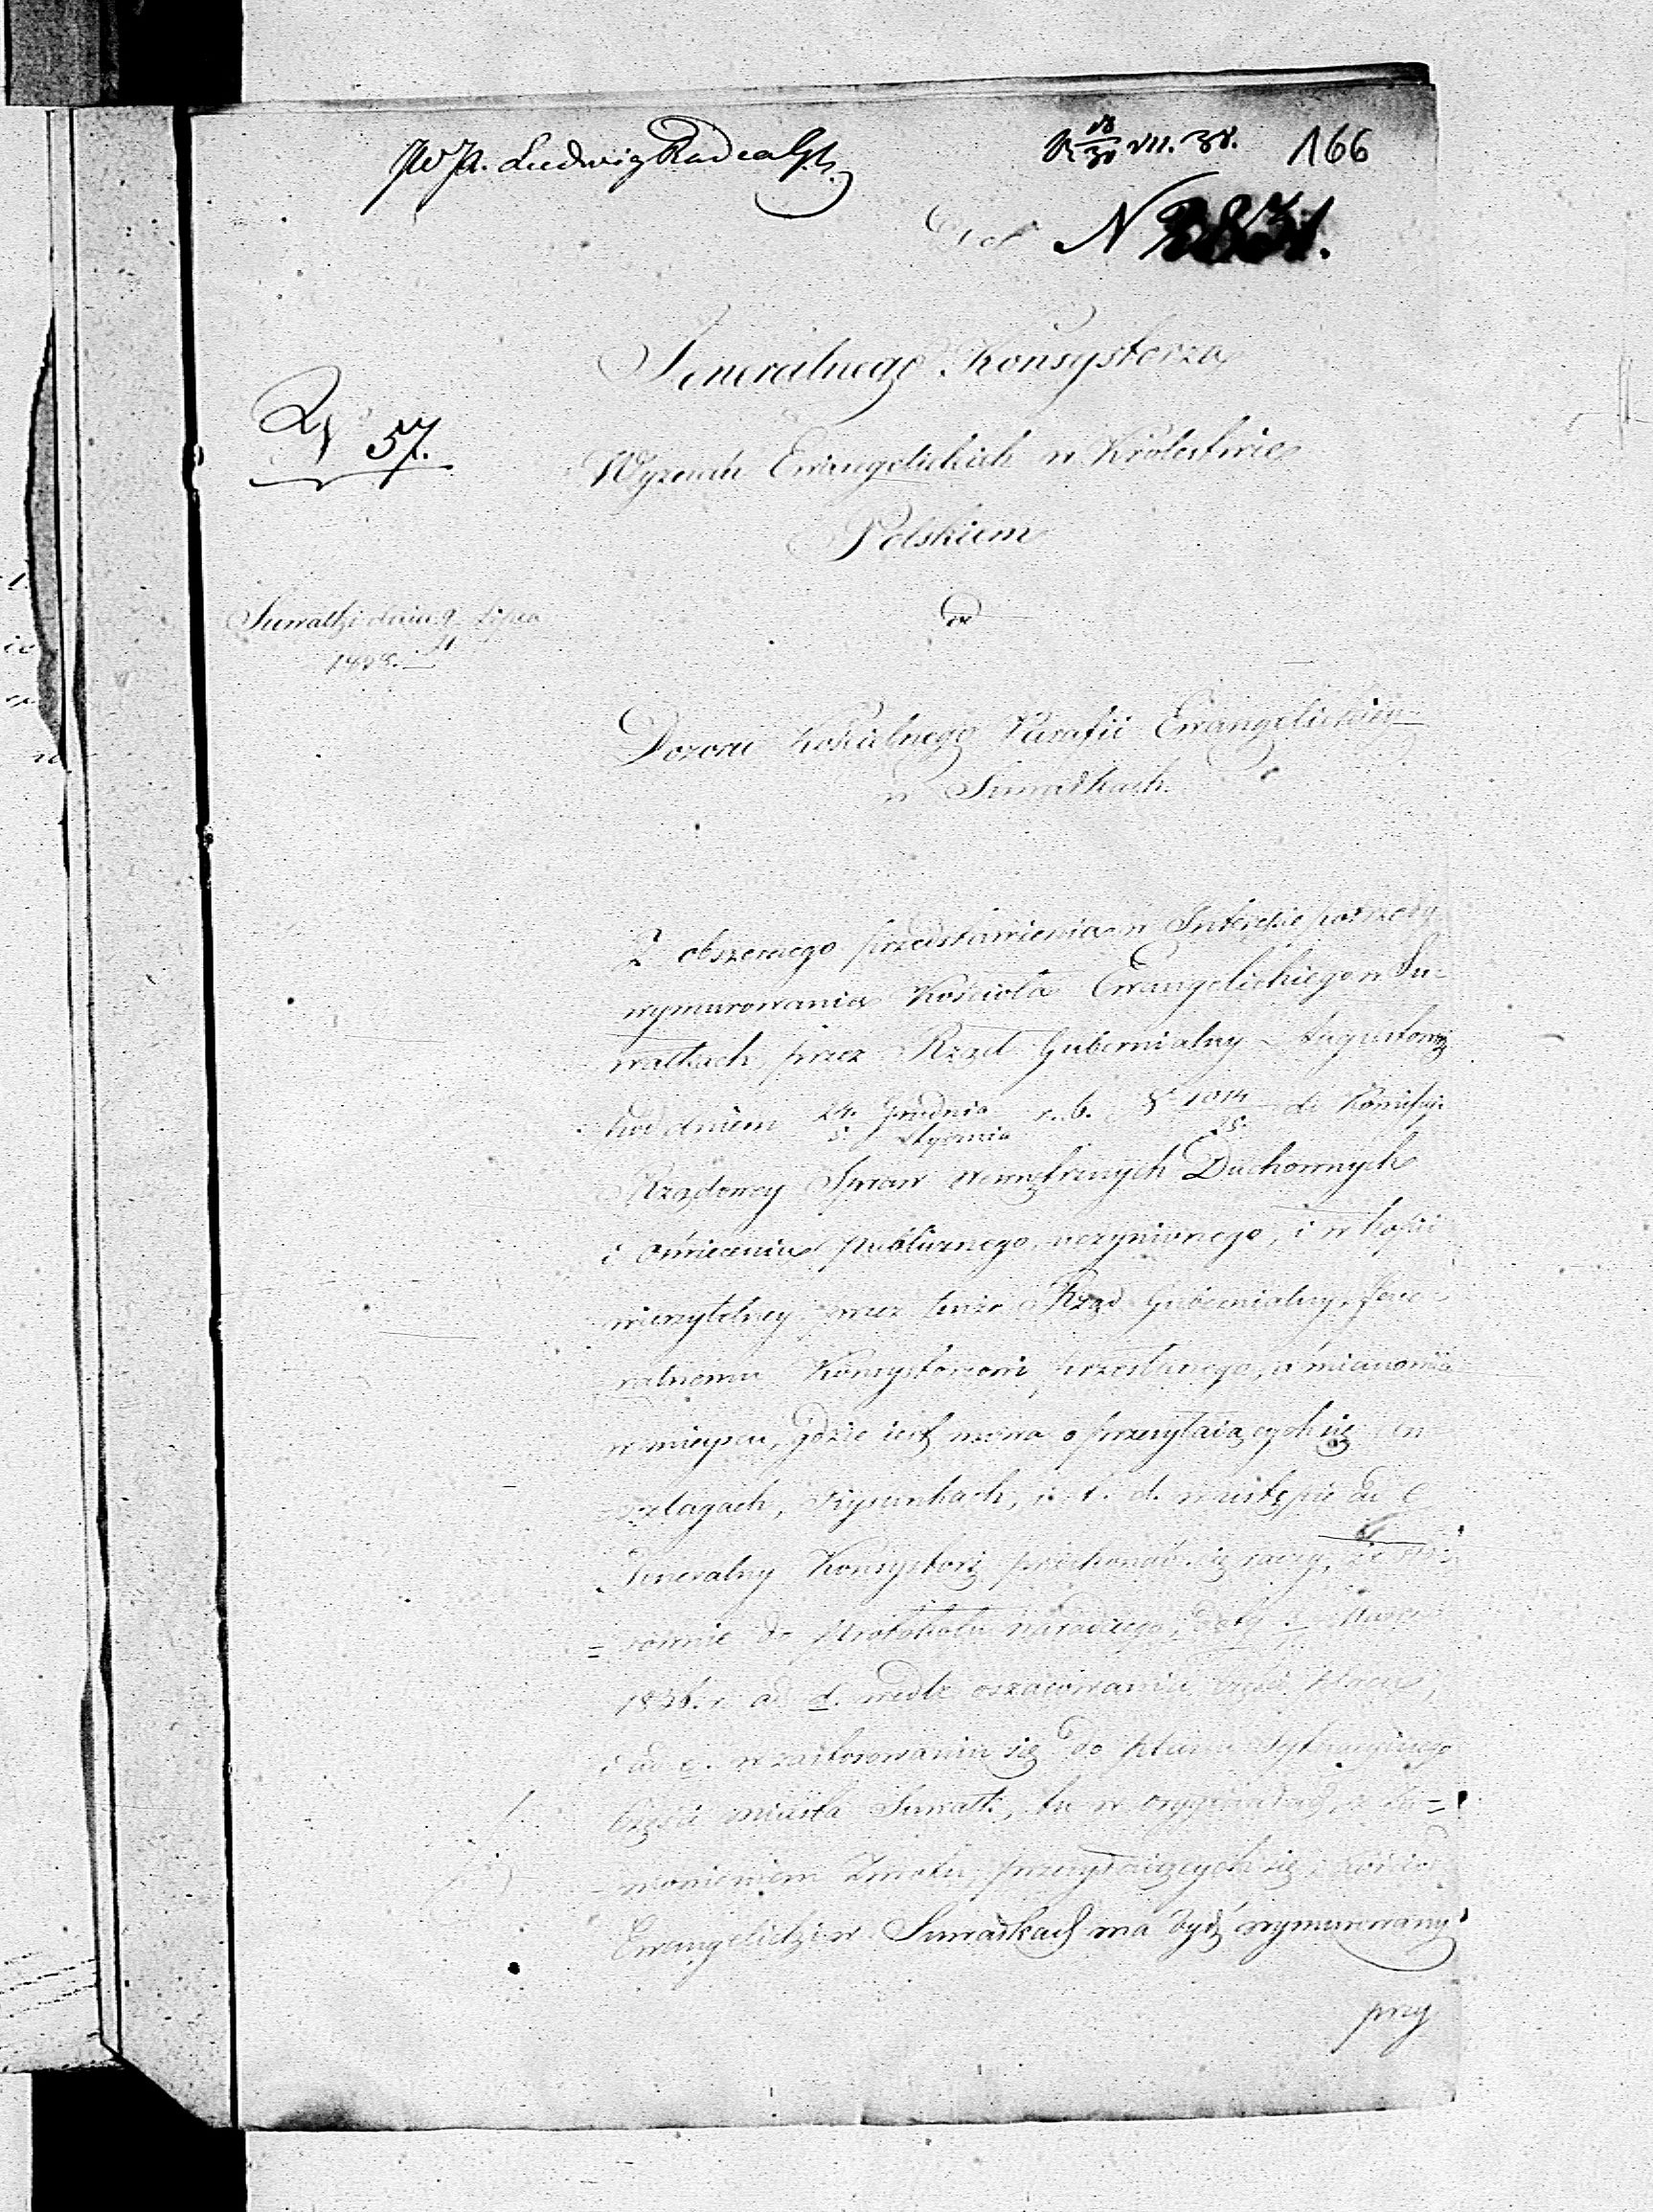 JW JX. Ludwig Radca G.K.
18/30 VII. 38. 166
Do N 2831.
Jeneralnego Konsystorza
N 57.
Wyznań Ewangelickich w Królestwie
Polskiem
Suwałki dnia 9 Lipca
1838.
od
Dozoru Kościelnego Parafii Ewangelickiey
w Suwałkach.
Z obszernego przedstawienia w Interesie potrzeby
wymurowania Kościoła Ewangelickiego w Su-
wałkach, przez Rząd Gubernialny Augustowski
pod dniem 24. Grudnia / 5. Stycznia r. b. N 1014 do Kommissyi
Rządowey Spraw Wewnętrznych Duchownych
i Oświecenia publicznego, uczynionego, i w kopii
wierzytelney przez tenże Rząd Gubernialny, Jene-
ralnemu Konsystorzowi przesłanego, a mianowicie
w mieyscu, gdzie iest mowa o przesyłaiących się
rysunkach, i. t. d. w ustępie ad e
Jeneralny Konsystorz przekonać się raczy, że
sownie do Protokołu
1836. r. ad d. wedle oszacowania części placu,
i ad e. w zastosowaniu się do planu Sytuacyinego
Części miasta Suwałk, tu w oryginałach z
mówieniem zwrotu, przesyłaiących się, Kościół
Ewangelicki w Suwałkach ma bydź wymurowany
przy